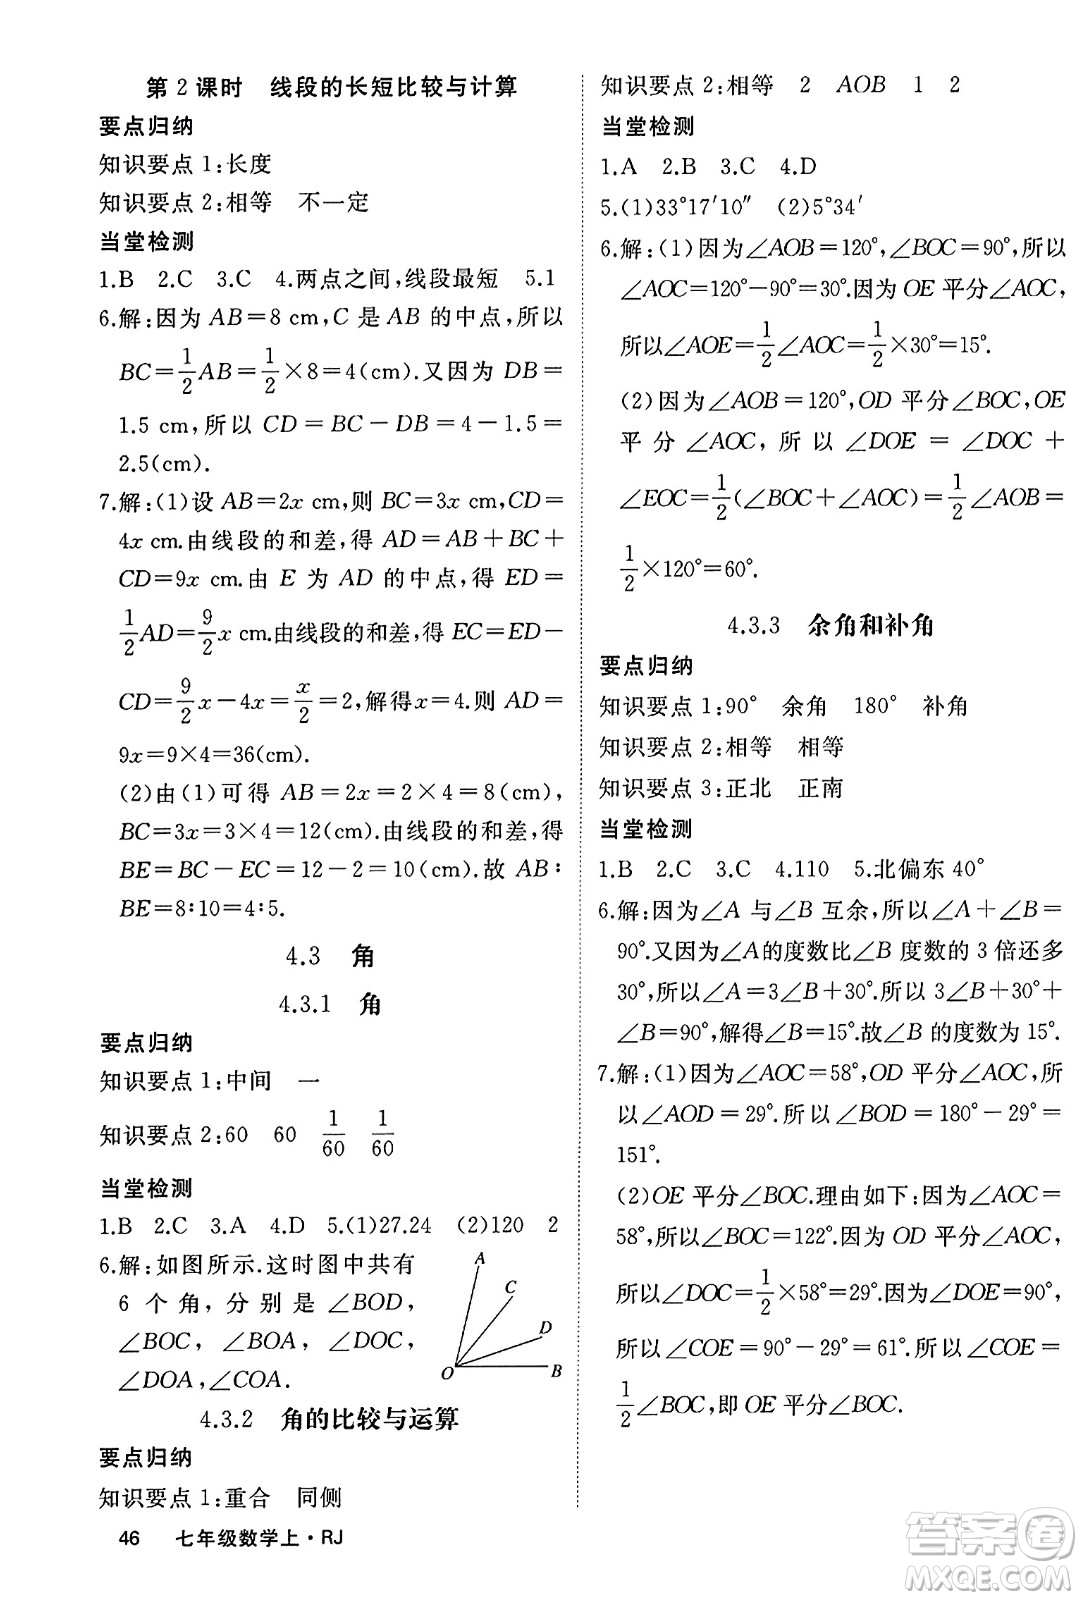 第 2 课时　线段的长短比较与计算
要点归纳
知识要点 1:长度
知识要点 2:相等　不一定
当堂检测
1.B　2.C　3.C　4.两点之间,线段最短　5.1
6.解:因为 AB=8 cm,C 是 AB 的中点,所以
BC=1/2AB=1/2×8=4(cm).又因为 DB=
1.5 cm,所以 CD=BC-DB=4-1.5=
2.5(cm).
7.解:(1)设 AB=2x cm,则 BC=3x cm,CD=
4x cm.由线段的和差,得 AD=AB+BC+
CD=9x cm.由 E 为 AD 的中点,得 ED=
1/2AD=9/2x cm.由线段的和差,得 EC=ED-
CD=9/2x-4x=x/2=2,解得x=4.则 AD=
9x=9×4=36(cm).
(2)由(1)可得 AB=2x=2×4=8(cm),
BC=3x=3×4=12(cm).由线段的和差,得
BE=BC-EC=12-2=10(cm).故 AB:
BE=8:10=4:5.
4.3　角
4.3.1　角
要点归纳
知识要点 1:中间　一
知识要点 2:60　60　1/60　1/60
当堂检测
1.B　2.C　3.A　4.D　5.(1)27.24　(2)120　2
6.解:如图所示.这时图中共有
6 个角,分别是∠BOD,
∠BOC,∠BOA,∠DOC,
∠DOA,∠COA.
A
C
D
O
B
4.3.2　角的比较与运算
要点归纳
知识要点 1:重合　同侧
46　七年级数学上·RJ
知识要点 2:相等　2　AOB　1　2
当堂检测
1.A　2.B　3.C　4.D
5.(1)33°17′10″　(2)5°34′
6.解:(1)因为∠AOB=120°,∠BOC=90°,所以
∠AOC=120°-90°=30°.因为 OE 平分∠AOC,
所以∠AOE=1/2∠AOC=1/2×30°=15°.
(2)因为∠AOB=120°,OD 平分∠BOC,OE
平分∠AOC,所以∠DOE=∠DOC+
∠EOC=1/2(∠BOC+∠AOC)=1/2∠AOB=
1/2×120°=60°.
4.3.3　余角和补角
要点归纳
知识要点 1:90°　余角　180°　补角
知识要点 2:相等　相等
知识要点 3:正北　正南
当堂检测
1.B　2.C　3.C　4.110　5.北偏东 40°
6.解:因为∠A 与∠B 互余,所以∠A+∠B=
90°.又因为∠A的度数比∠B 度数的 3 倍还多
30°,所以∠A=3∠B+30°.所以 3∠B+30°+
∠B=90°,解得∠B=15°.故∠B 的度数为 15°.
7.解:(1)因为∠AOC=58°,OD 平分∠AOC,所
以∠AOD=29°.所以∠BOD=180°-29°=
151°.
(2)OE 平分∠BOC.理由如下:因为∠AOC=
58°,所以∠BOC=122°.因为 OD 平分∠AOC,
所以∠DOC=1/2×58°=29°.因为∠DOE=90°,
所以∠COE=90°-29°=61°.所以∠COE=
1/2∠BOC,即 OE 平分∠BOC.
答案圈
MXQE.COM